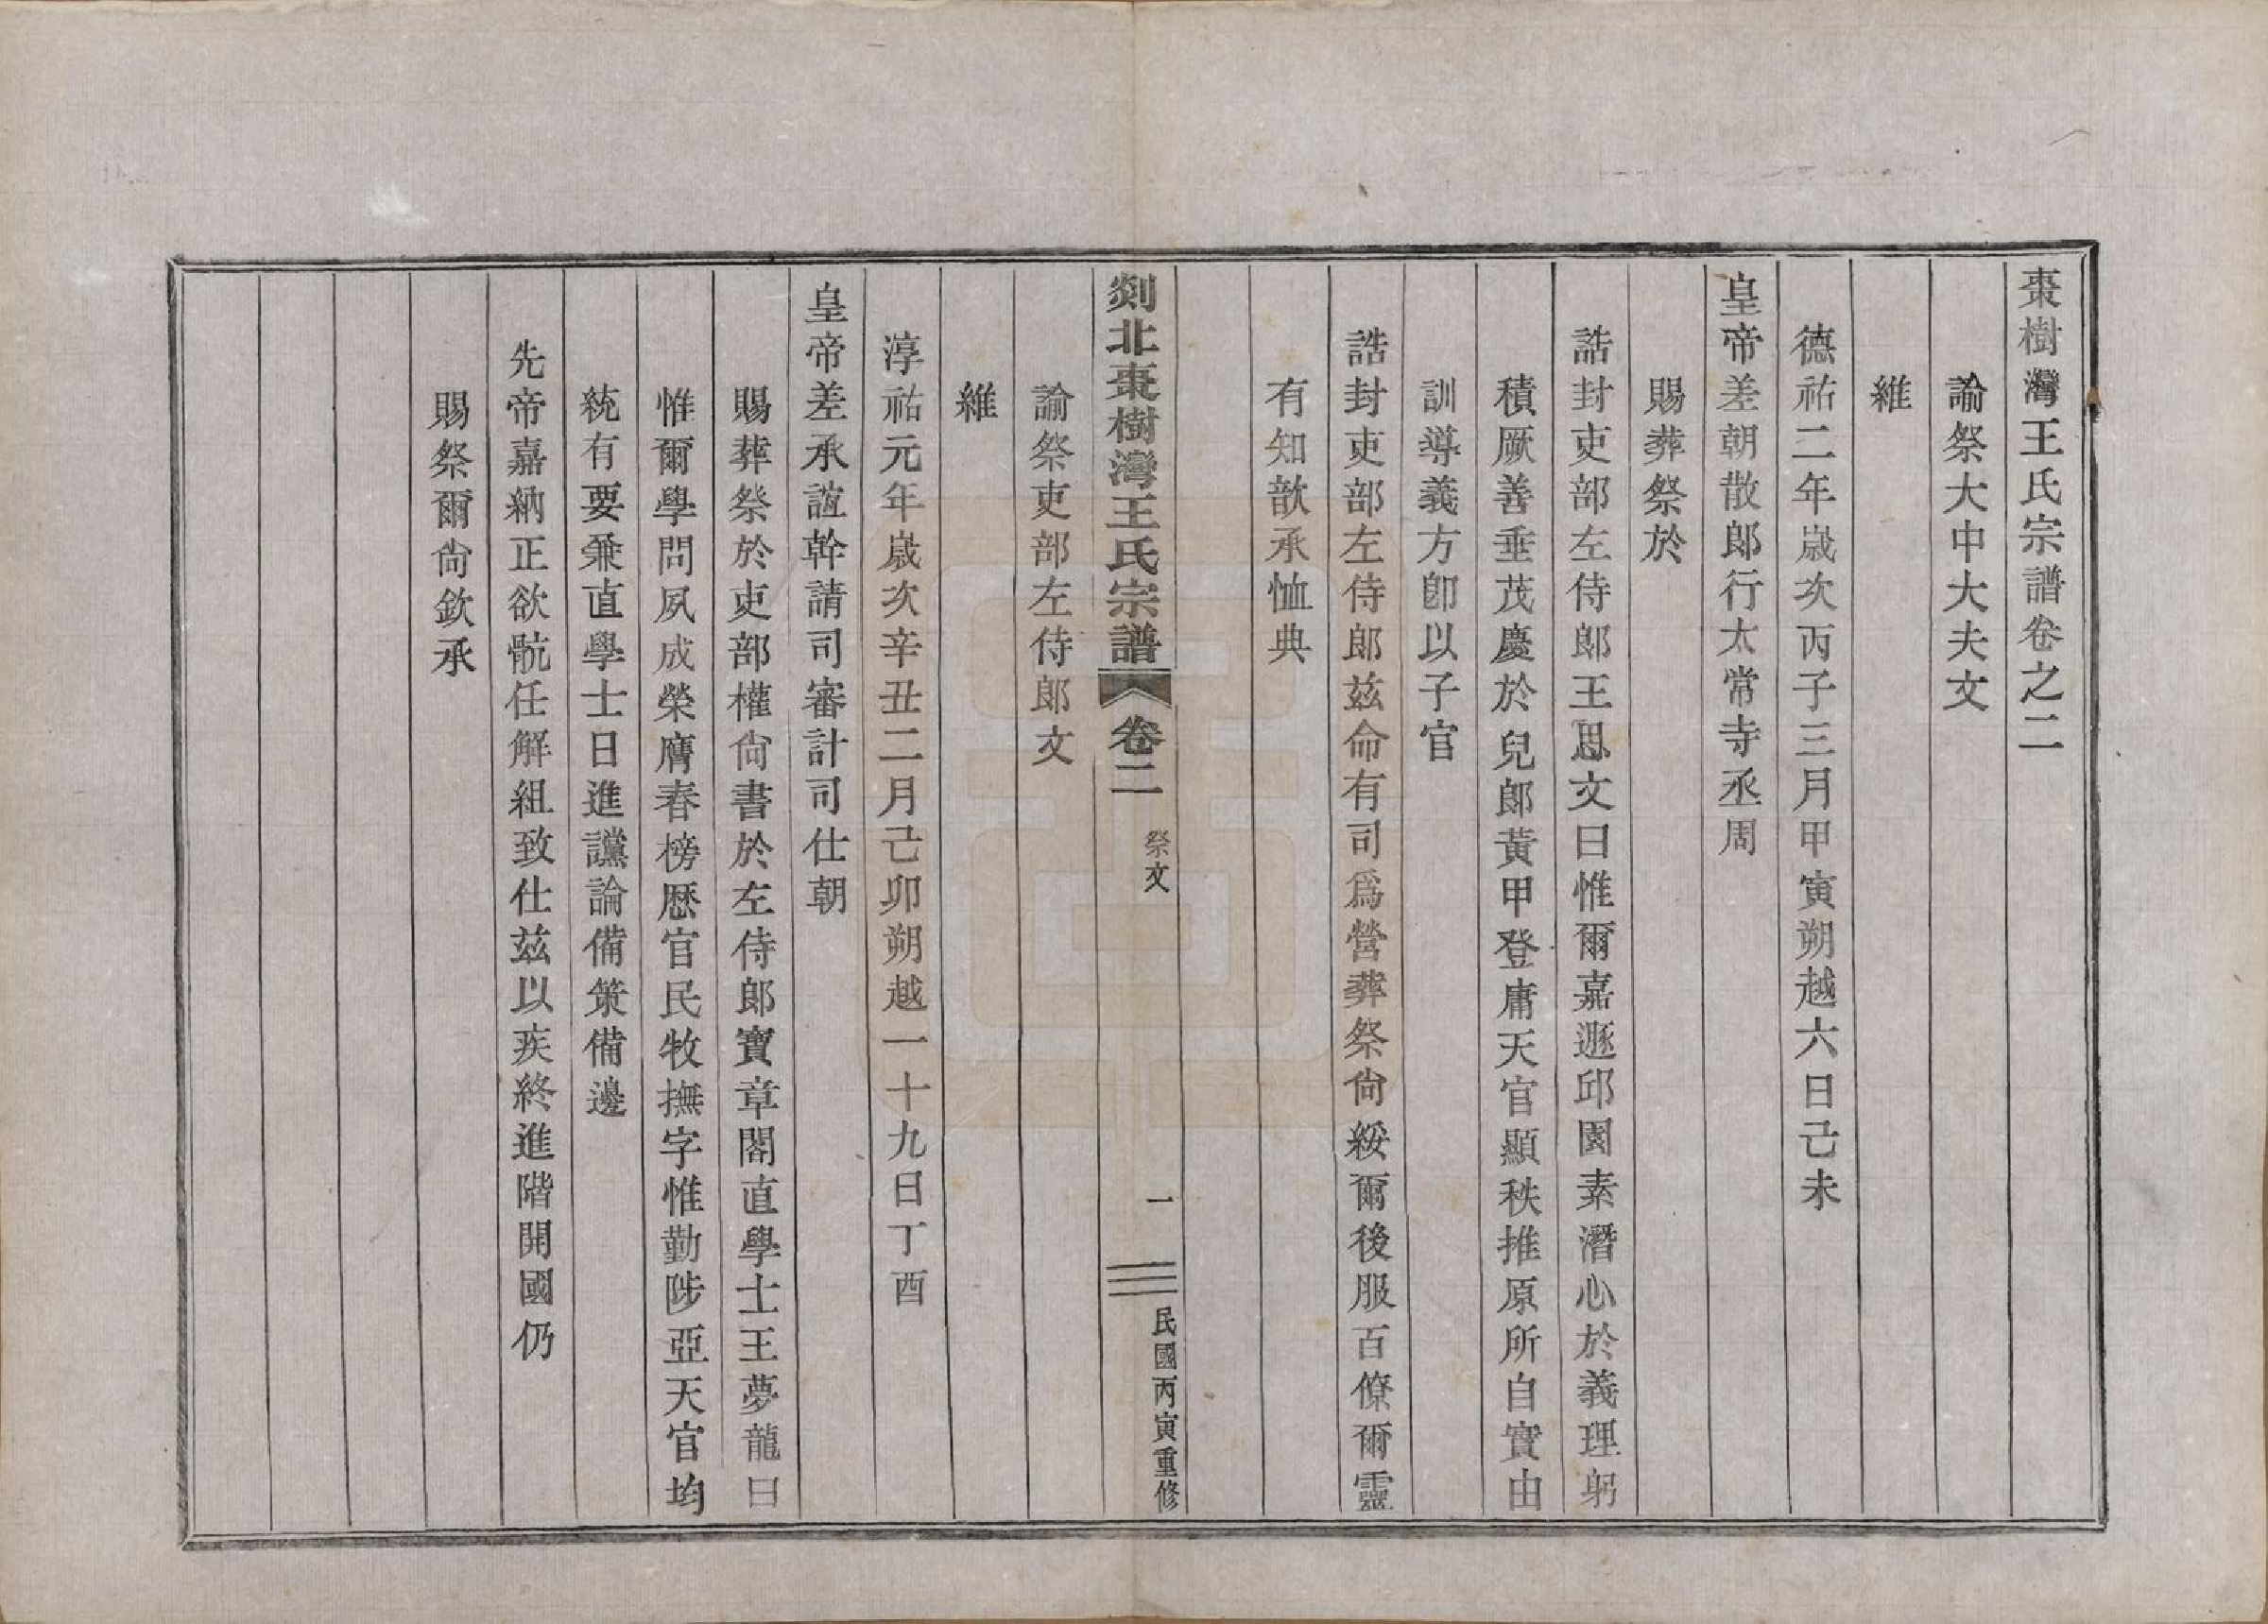 棗樹灣王氏宗譜卷之二
諭祭大中大夫文
維
德祐二年歲次丙子三月甲寅朔越六日己未
皇帝差朝散郎行太常寺丞周
賜葬祭於
誥封吏部左侍郎王思文曰惟爾嘉遯邱園素潛心於義理躬
積厥善垂茂慶於兒郎黃甲登庸天官顯秩推原所自實由
訓導義方卽以子官
誥封吏部左侍郎茲命有司爲營葬祭尙綏爾後服百僚爾靈
有知歆承恤典
剡北棗樹灣王氏宗譜 卷二 祭文 一 民國丙寅重修
諭祭吏部左侍郎文
維
淳祐元年歲次辛丑二月己卯朔越一十九日丁酉
皇帝差承誼幹請司審計司仕朝
賜葬祭於吏部權尙書於左侍郎寶章閣直學士王夢龍曰
惟爾學問夙成榮膺春榜歷官民牧撫字惟勤陟亞天官均
統有要兼直學士日進讜論備策備邊
先帝嘉納正欲骯任解組致仕茲以疾終進階開國仍
賜祭爾尙欽承